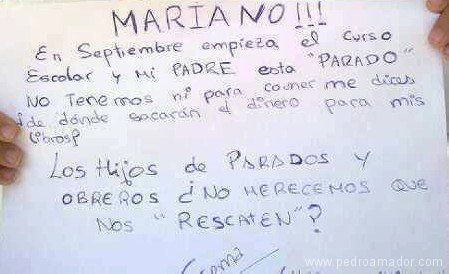 MARIANO!!!
En Septiembre empieza el curso
Escolar y Mi PADRE esta "PARADO"
NO Tenemos ni para comer me dices
¿de dónde sacarán el dinero para mis
libros?
Los Hijos de PARADOS Y
OBREROS ¿NO MERECEMOS QUE
NOS "RESCATEN"?
www.pedroamador.com